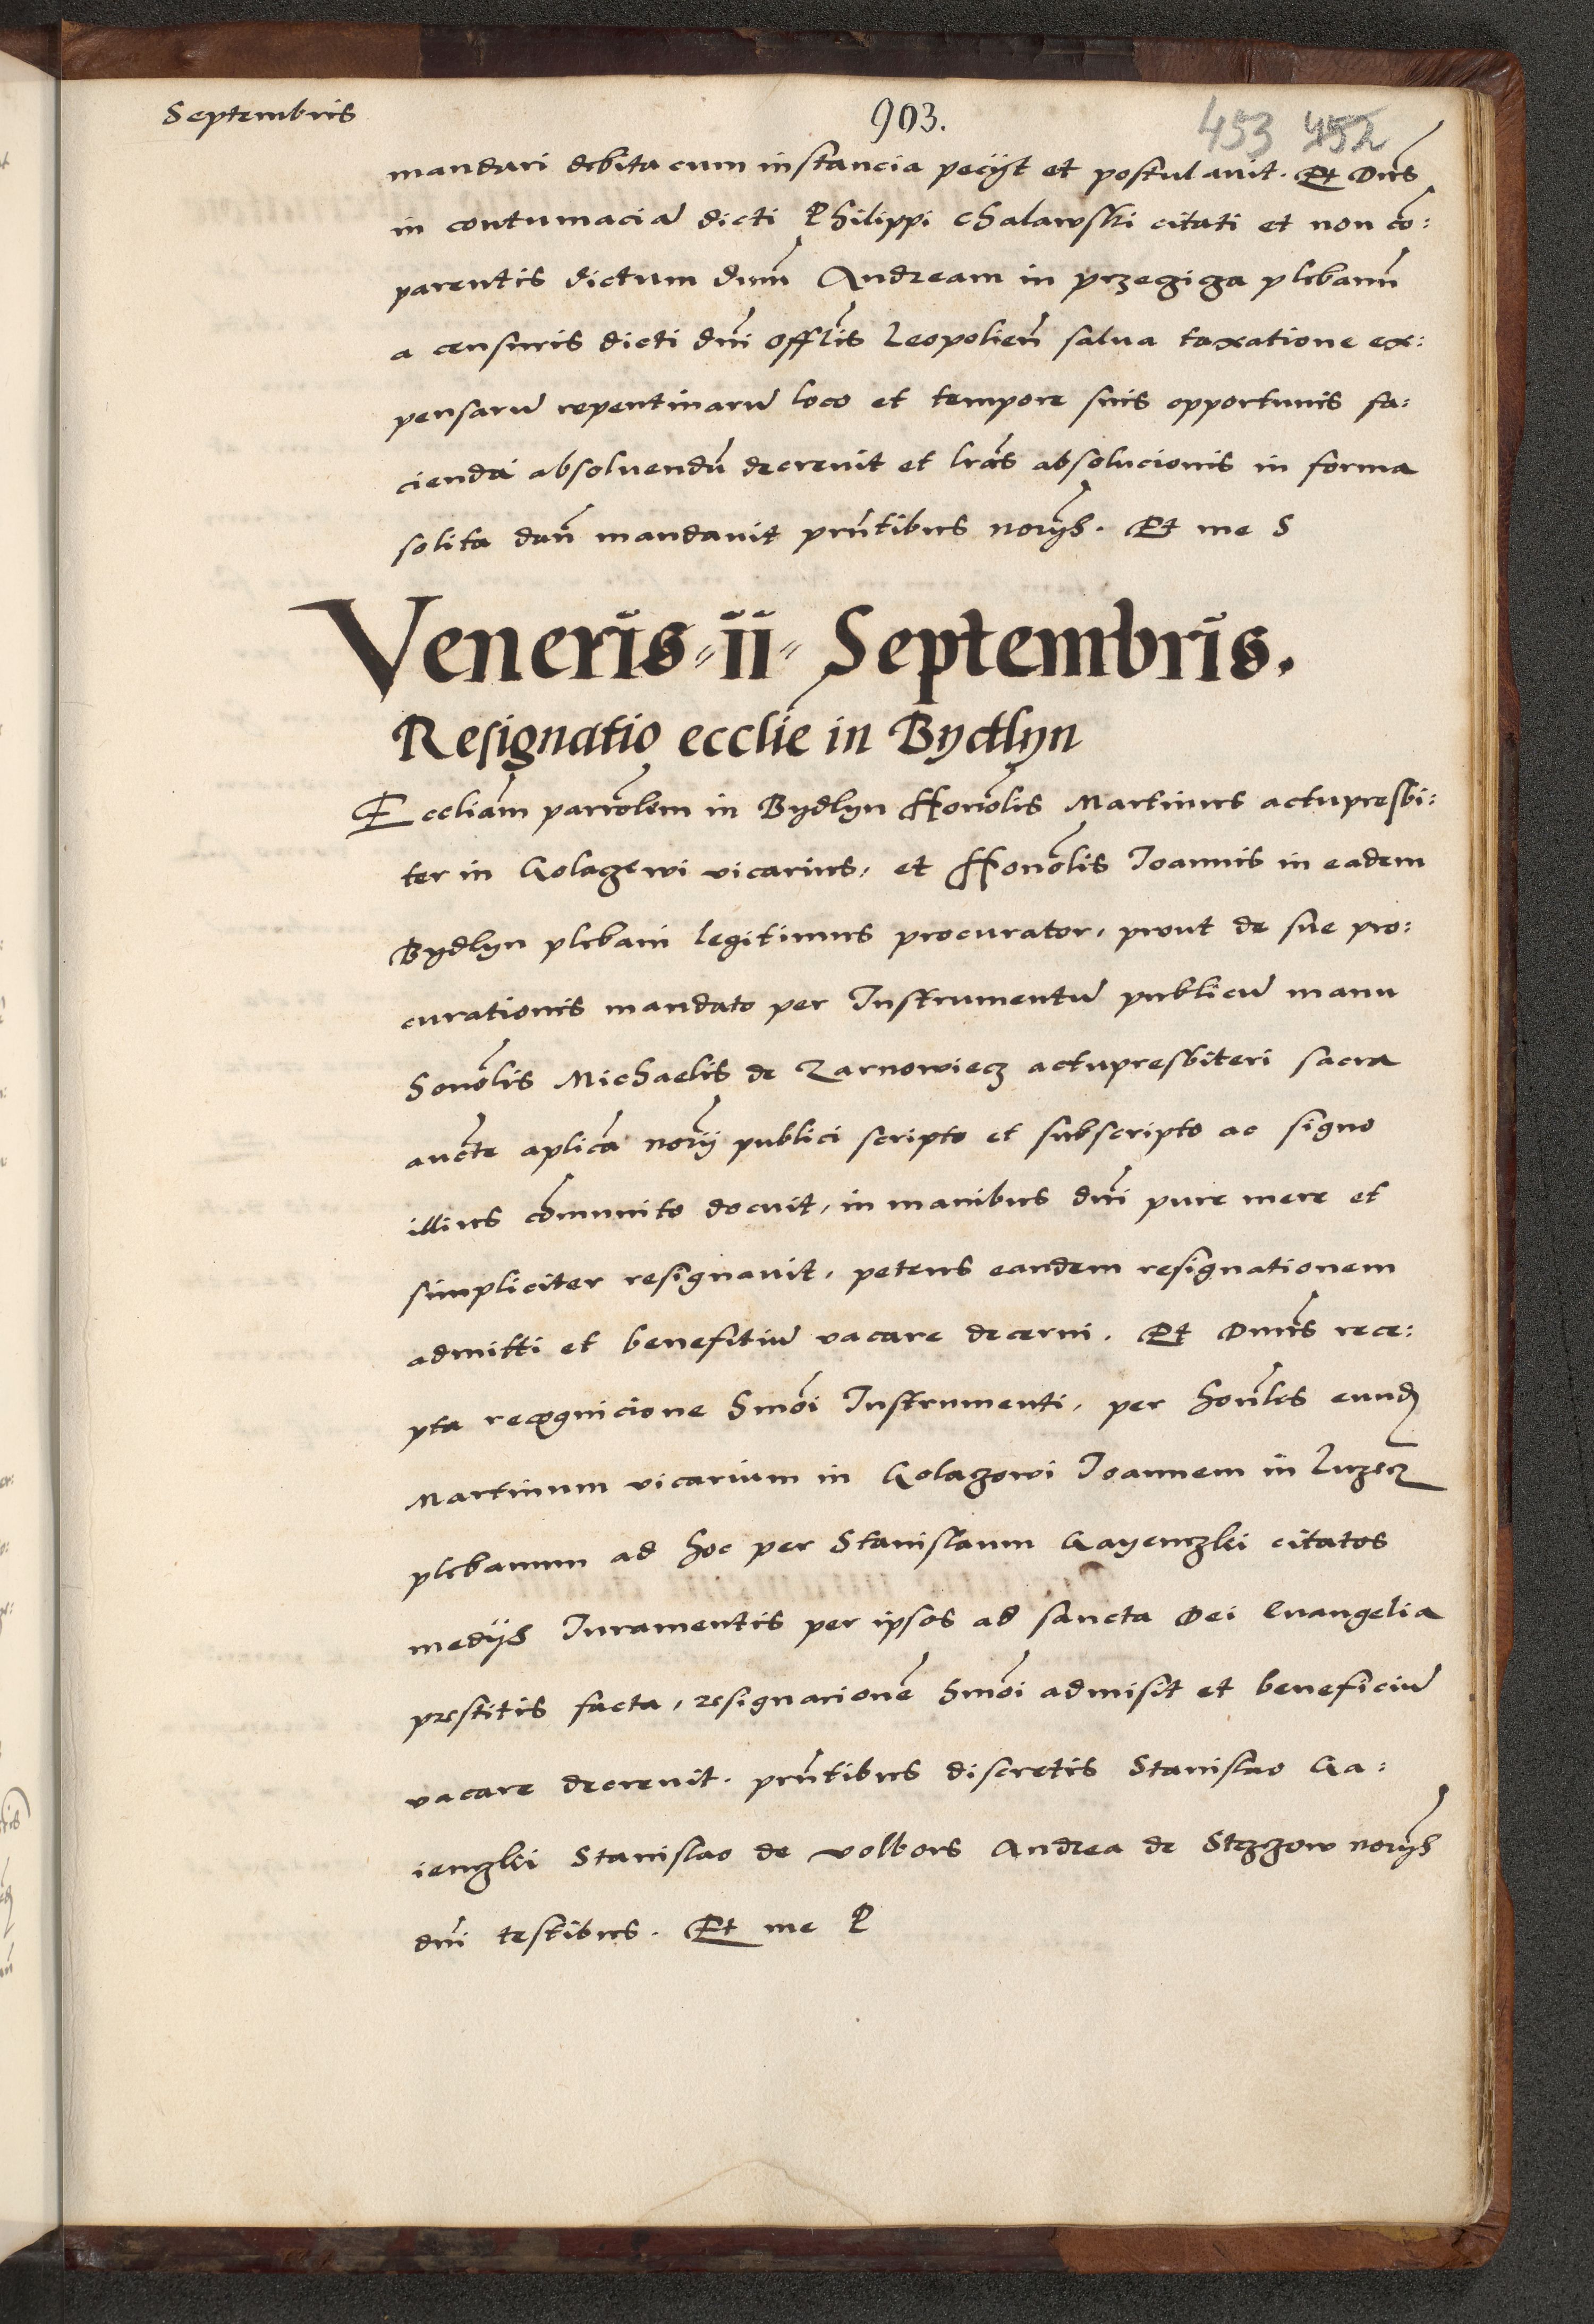 Septembris
903.
453 452
mandari debita cum instancia peciit et postulavit. Et Dns̄
in contumaciā dicti Philippi Chalawski citati et non cō:
parentis dictum dnm̄ Andream in przegiga plebanū
a censuris dicti dnī offlīs Leopolien̄ salva taxatione ex:
pensarū repentinarū loco et tempore suis opportunis fa:
cienda absolvendū decrevit et lrās absolucionis in forma
solita dan̄ mandavit prn̄tibus norijs̄. Et me S
Veneris ii Septembris.
Resignatio eccliē in Bydlyn
Eccliam̄ parrōlem in Bydlyn Honōlis Martinus actupresbi:
ter in Golaczewi vicarius, et Honōlis Ioannis in eadem
Bydlyn plebani legitimus procurator, prout de sue pro:
curationis mandato per Instrumentū publicū manu
honōlis Michaelis de Zarnowiecz actupresbiteri sacra
aucte aplicā norīj publici scripto et subscripto ac signo
illius cōmunito docuit, in manibus dnī pure mere et
simpliciter resignavit, petens eandem resignationem
admitti et benefitiū vacare decerni. Et Dnūs rece:
pta recognicione hmōi Instrumenti, per honl̄es eund
Martinum vicarium in Golaczowi Ioannem in
plebanum ad hoc per Stanislaum Gayenczki citatos
medijs Iuramentis per ipsos ad sancta Dei Evangelia
prestitis facta, resignacionē hmōi admisit et beneficiū
vacare decrevit. prn̄tibus discretis Stanislao Ga:
ienczki Stanislao de volbors Andrea de norijs̄
dnī testibus. Et me P